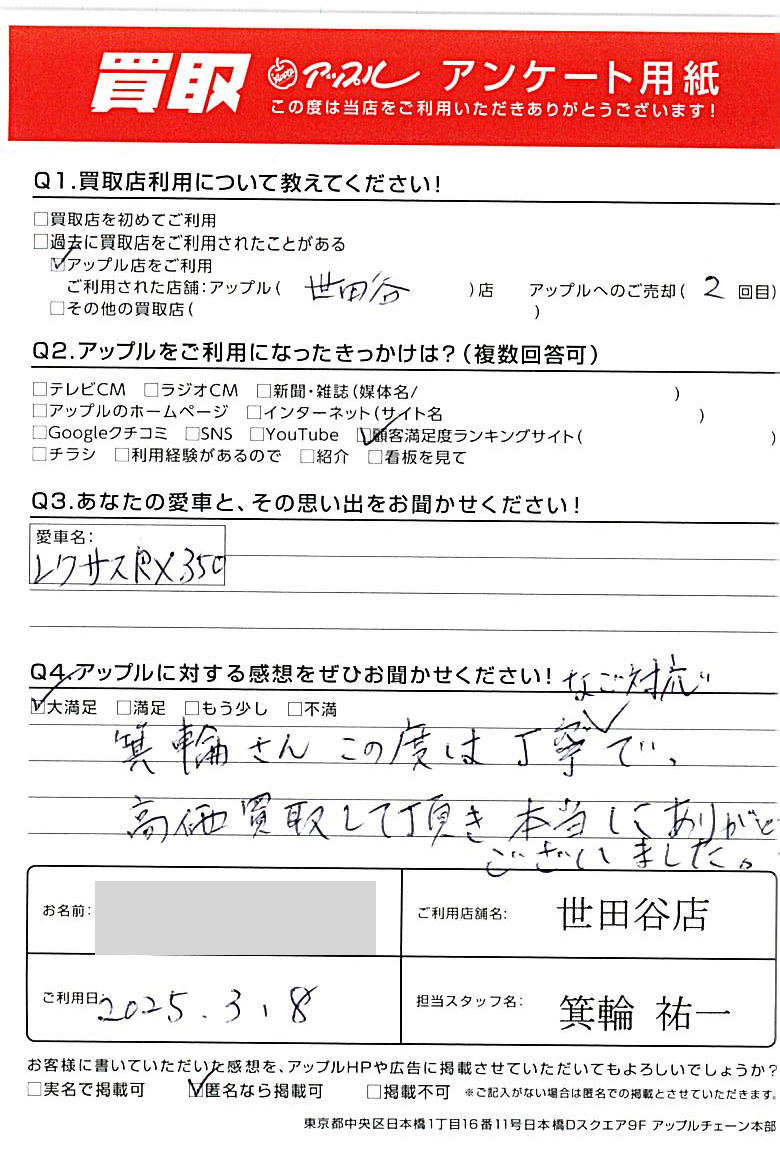 買取 アップル アンケート用紙
この度は当店をご利用いただきありがとうございます!
Q1.買取店利用について教えてください!
□買取店を初めてご利用
□過去に買取店をご利用されたことがある
☑アップル店をご利用
ご利用された店舗:アップル( 世田谷 )店 アップルへのご売却( 2 回目)
□その他の買取店( )
Q2.アップルをご利用になったきっかけは?(複数回答可)
□テレビCM □ラジオCM □新聞・雑誌(媒体名/ )
□アップルのホームページ □インターネット(サイト名 )
□Googleクチコミ □SNS □YouTube ☑顧客満足度ランキングサイト( )
□チラシ □利用経験があるので □紹介 □看板を見て
Q3.あなたの愛車と、その思い出をお聞かせください!
愛車名:
レクサスRX350
Q4.アップルに対する感想をぜひお聞かせください!
☑大満足 □満足 □もう少し □不満
なご対応
箕輪さん この度は丁寧で、
高価買取して頂き 本当にありがと
ございました。
お名前: ご利用店舗名: 世田谷店
ご利用日: 2025.3.8 担当スタッフ名: 箕輪 祐一
お客様に書いていただいた感想を、アップルHPや広告に掲載させていただいてもよろしいでしょうか?
□実名で掲載可 ☑匿名なら掲載可 □掲載不可 ※ご記入がない場合は匿名での掲載とさせていただきます。
東京都中央区日本橋1丁目16番11号日本橋Dスクエア9F アップルチェーン本部